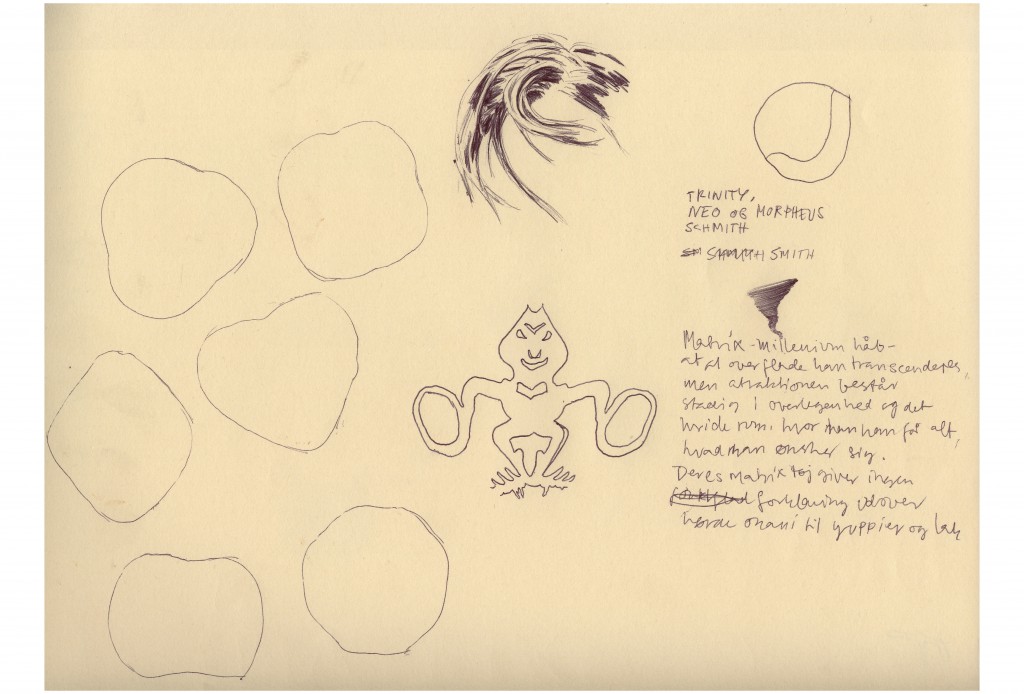 TRINITY,
NEO OG MORPHEUS
SCHMITH
SMITH
Matrix-millenium håb-
at al overflade kan transcenderes,
men atraktionen består
stadig i overlegenhed og det
hvide rum, hvor man kan få alt,
hvad man ønsker sig.
Deres matrix tøj giver ingen
forklaring udover
onani til yuppier og lak